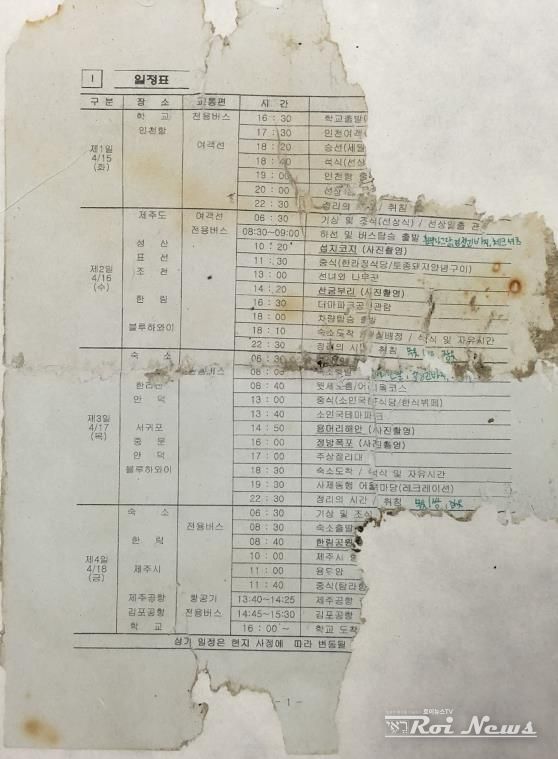 I 일정표
구 분 장 소 교통편 시 간
제1일 4/15 (화)
학 교 전용버스 16 : 30 학교출발
인천항 17 : 30 인천여객
여객선 18 : 20 승선(세월
18 : 40 석식(선상
19 : 00 인천항 출
20 : 00 선상
22 : 30 정리의 / 취침
제2일 4/16 (수)
제주도 여객선 06 : 30 기상 및 조식(선상식) / 선상일출 관
전용버스 08:30~09:00 하선 및 버스탑승 출발
성 산 10 : 20 섭지코지 (사진촬영)
표 선 11 : 30 중식(한라정식당/토종돼지양념구이)
조 천 13 : 00 선녀와 나무꾼
14 : 20 산굼부리 (사진촬영)
한 림 16 : 30 더마파크공연관람
18 : 00 차량탑승 출발
블루하와이 18 : 10 숙소도착 / 실배정 / 석식 및 자유시간
22 : 30 정리의 시간 / 취침
제3일 4/17 (목)
숙 소 06 : 30
전용버스 08 : 00 숙소출발
한라산 08 : 40 윗세오름/어리목코스
안 덕 13 : 00 중식(소인국 식당/한식뷔페)
13 : 40 소인국테마파크
서귀포 14 : 50 용머리해안 (사진촬영)
중 문 16 : 00 정방폭포 (사진촬영)
안 덕 17 : 00 주상절리대
블루하와이 18 : 30 숙소도착 / 석식 및 자유시간
19 : 30 사제동행 어울 마당(레크레이션)
22 : 30 정리의 시간 / 취침
제4일 4/18 (금)
숙 소 06 : 30 기상 및 조식
전용버스 08 : 30 숙소출발
한 림 08 : 40 한림공원
제주시 10 : 00 제주시
11 : 00 용두암
11 : 40 중식(탐라
제주공항 항공기 13:40~14:25 제주공항
김포공항 전용버스 14:45~15:30 김포공항
학 교 16 : 00 ~ 학교 도착
상기 일정은 현지 사정에 따라 변동될
- 1 -
로이뉴스TV
Roi News